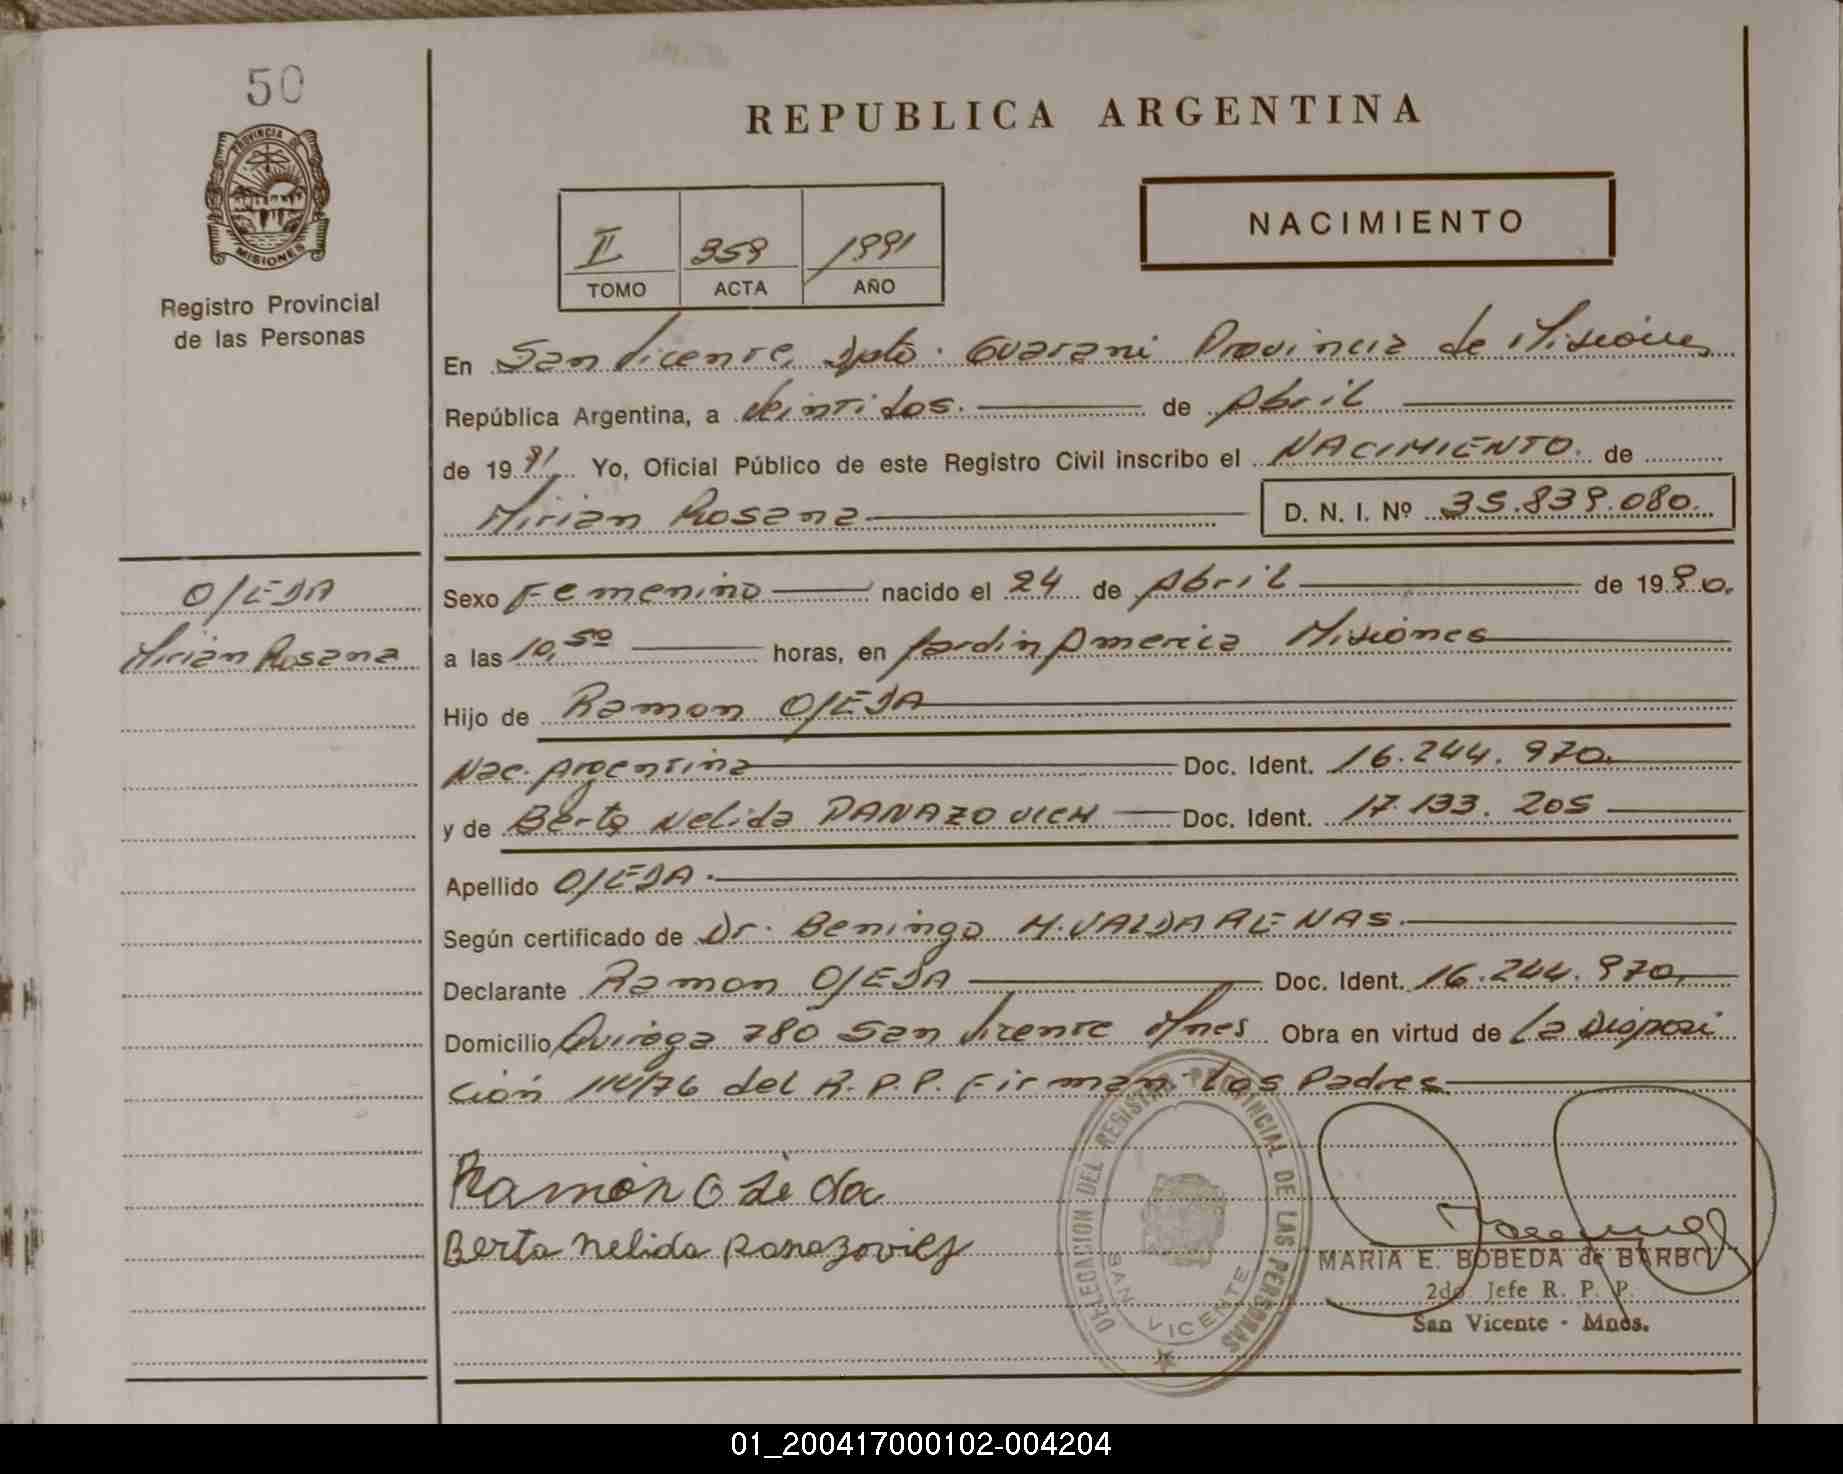 50
PROVINCIA DE
MISIONES
Registro Provincial
de las Personas
REPUBLICA ARGENTINA
II 359 1991
TOMO ACTA AÑO
NACIMIENTO
En San Vicente, Dpto. Guarani Provincia de Misiones
República Argentina, a Veintidos. de Abril
de 1991 Yo, Oficial Público de este Registro Civil inscribo el NACIMIENTO. de
Mirian Rosana D. N. I. Nº 35.839.080.
OJEDA
Mirian Rosana
Sexo Femenino nacido el 24 de Abril de 1990.
a las 10,50 horas, en Jardin America Misiones
Hijo de Ramon OJEDA
Nac. Argentina Doc. Ident. 16.244.970.
y de Berta Nelida PANAZOVICH Doc. Ident. 17.133.205
Apellido OJEDA.
Según certificado de Dr. Beningo H. VALDA ARENAS.
Declarante Ramon OJEDA Doc. Ident. 16.244.970.
Domicilio Quiroga 780 San Vicente Mnes Obra en virtud de La Disposi
ción 114/76 del R.P.P. Firman Los Padres
Ramón Ojeda
Berta Nelida
DELEGACION DEL REGISTRO PROVINCIAL DE LAS PERSONAS
SAN VICENTE
MARIA E. BOBEDA de BARBO
2do. Jefe R. P. P.
San Vicente - Mnes.
01_200417000102-004204